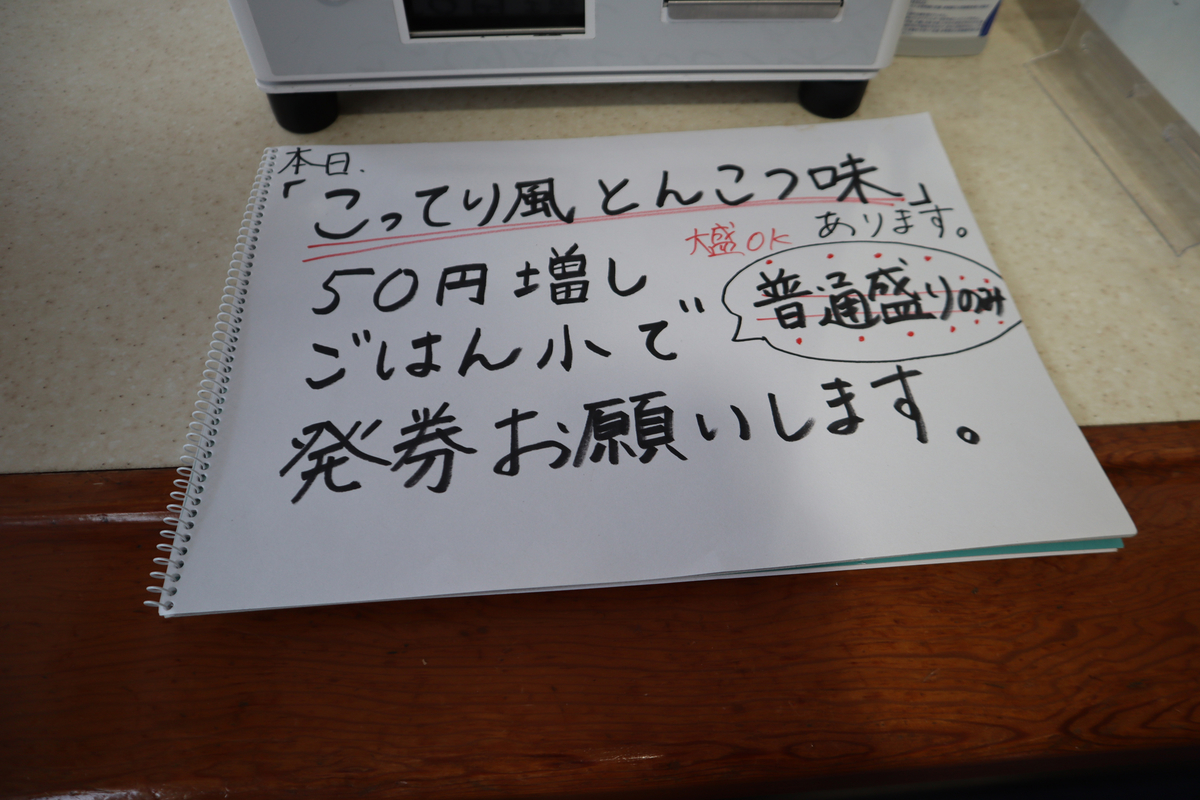 本日.
「こってり風とんこつ味」
大盛OK あります。
50円増し
普通盛りのみ
ごはん小で
発券お願いします。